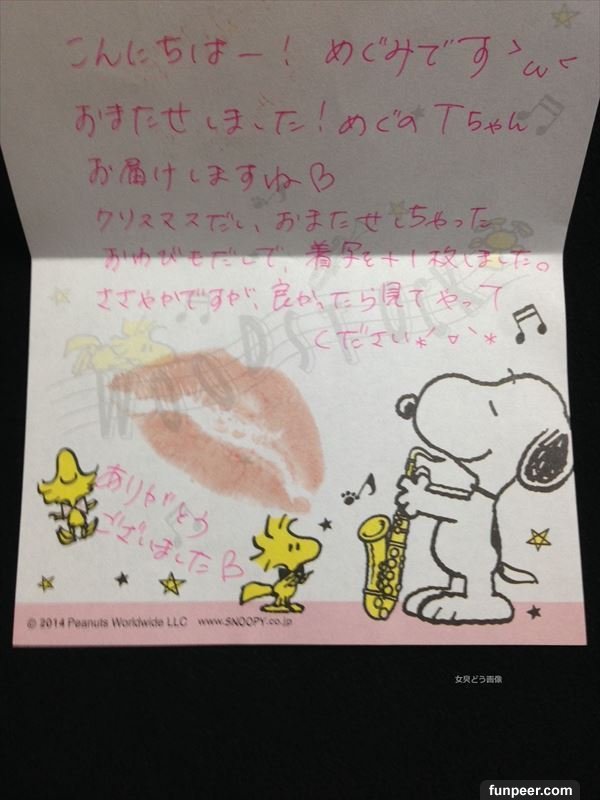 こんにちはー！ めぐみです>ω<
おまたせしました！めぐのTちゃん
お届けしますねB
クリスマスだい、おまたせしちゃった
おわびもだしで、着写を+1枚しました。
ささやかですが、良かったら見てやって
ください*´▽`*
WOODSTOCK
ありがとう
ございましたB
© 2014 Peanuts Worldwide LLC www.SNOOPY.co.jp
女臭どう画像
funpeer.com